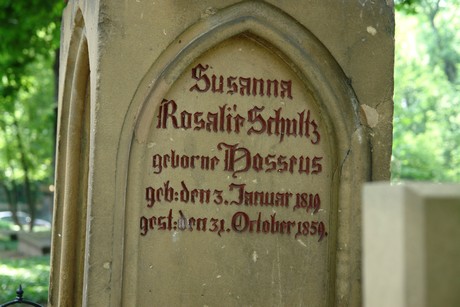 Susanna
Rosalie Schultz
geborne Hosseus
geb: den 3. Januar 1810
gest: den 31. October 1859.